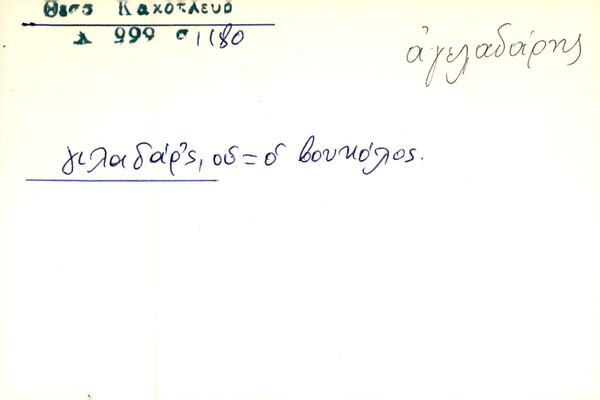 Θεσσ Κακόπλευρο
λ 999 σ 1180
ἀγελαδάρης
γιλαδάρ'ς, οὑ = ὁ βουκόλος.